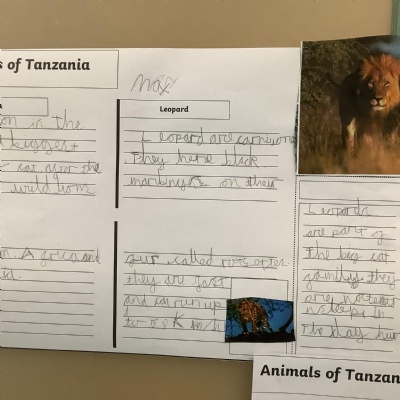 s of Tanzania
Max
on in the
biggest
cat
wild lions
Africa and
Leopard
Leopard are carnivore
They have black
markings on their
fur called rosettes
they are fast
and can run up
to 58 Km/h
Leopards
are part of
the big cat
family they
are
asleep in
the day
Animals of Tanzan